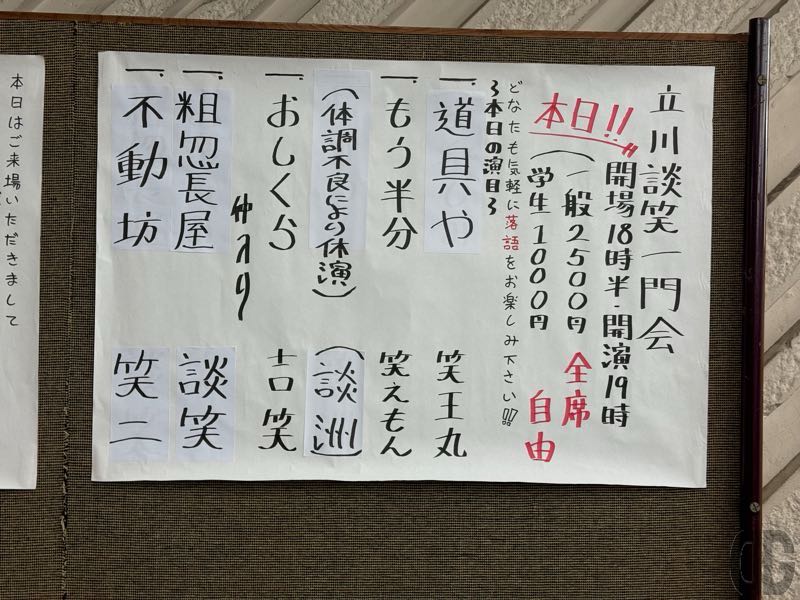 立川談笑一門会
本日!! 開場18時半・開演19時
(一般2500円 全席
(学生1000円 自由
どなたも気軽に落語をお楽しみ下さい!!
〜本日の演目〜
一、道具や 笑王丸
一、もう半分 笑えもん
(体調不良により休演) (談洲)
一、おしくら 吉笑
仲入り
一、粗忽長屋 談笑
一、不動坊 笑二
本日はご来場いただきまして